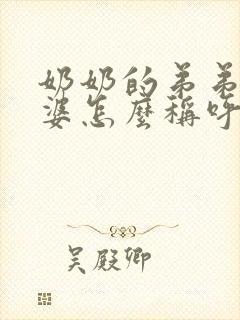 奶奶的弟弟
婆怎麼稱呼
吳殿卿